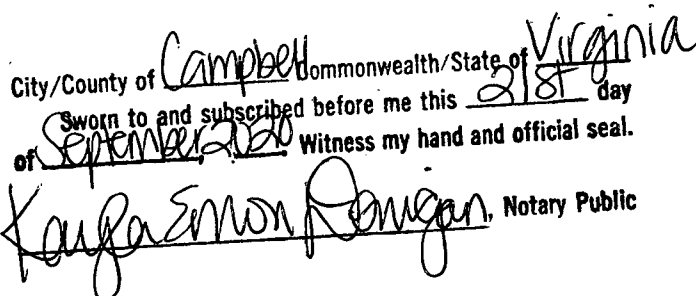 City/County of Campbell Commonwealth/State of Virginia
Sworn to and subscribed before me this 21st day
of September, 2020. Witness my hand and official seal.
Kayla , Notary Public